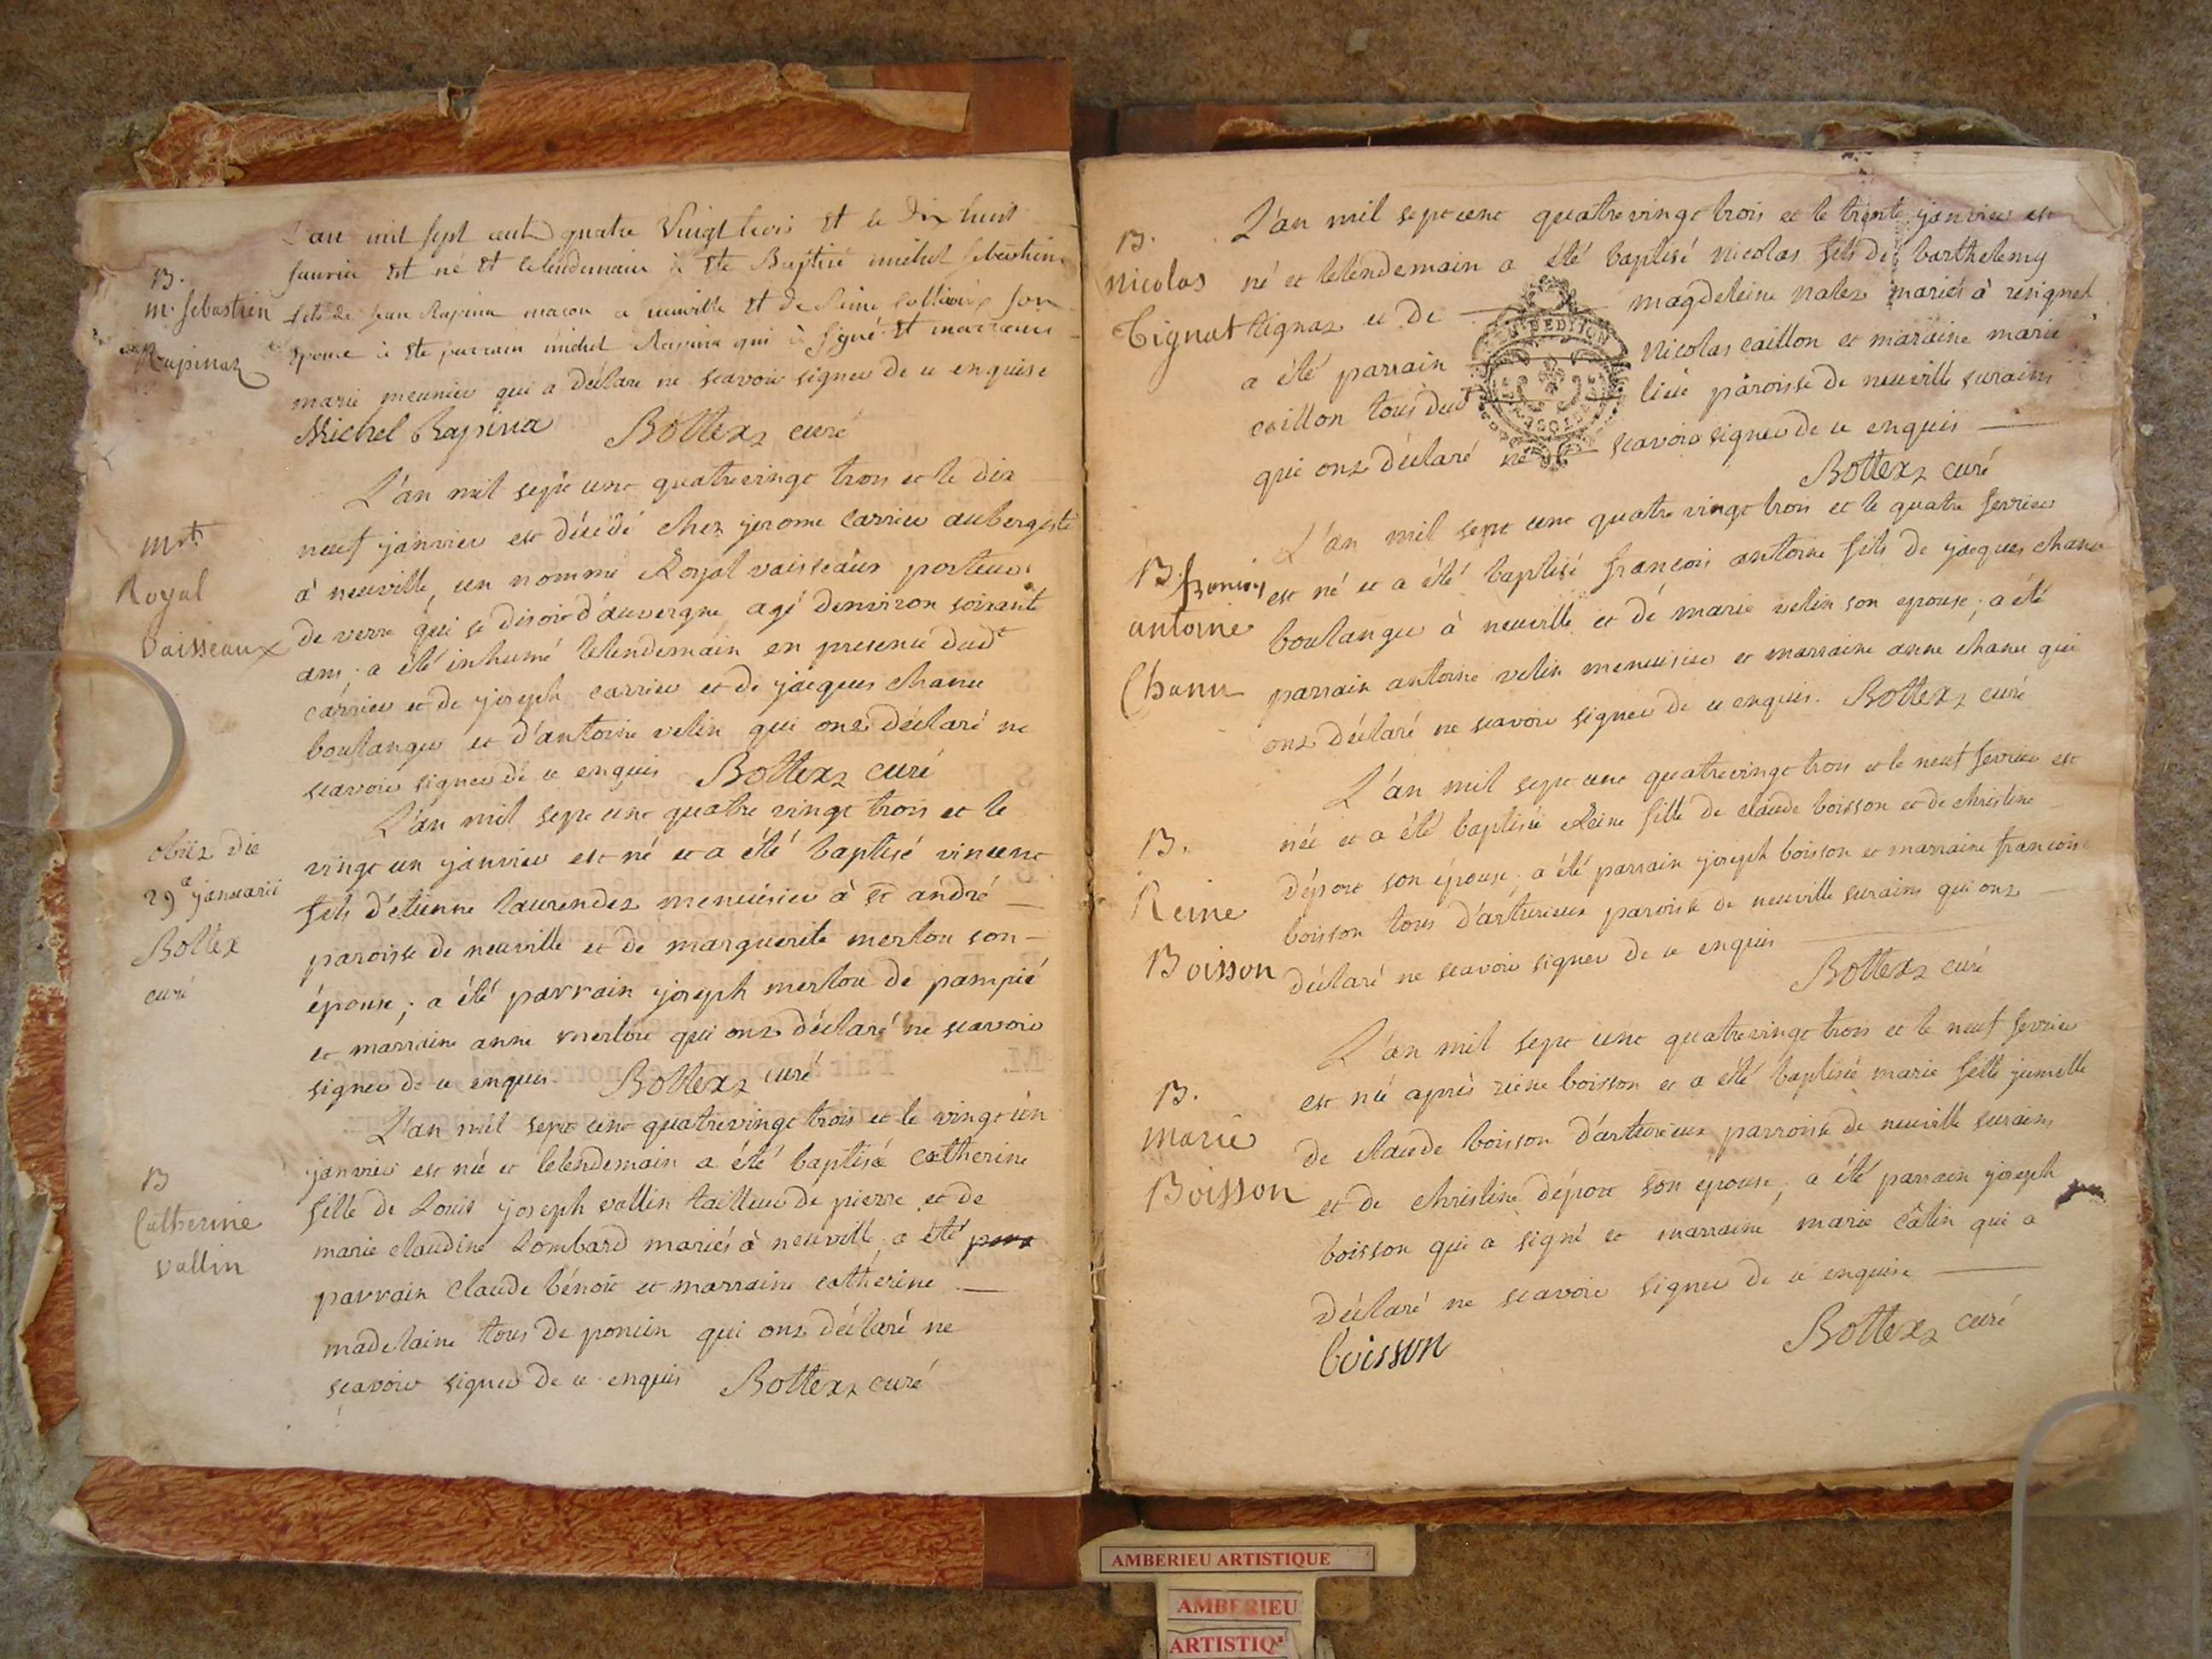 L'an mil sept cent quatre Vingt trois et le dix huit
janvier est né et lelendemain à etе Baptisé michel sebastien
fils de jean Rapina macon a neuville et de Reine son
épouse à ete parrain michel Rapina qui à signé et marraine
marie meunier qui a déclaré ne scavoir signer de ce enquise
Michel Rapina Bottex curé
B.
m. sebastien
Rapinaz
L'an mil sept cent quatrevingt trois et le dix
neuf janvier est décédé chez jerome Carrier aubergiste
à neuville, un nommé Royal vaisseaux porteur
de verre qui se disoit d'auvergne, agé denviron soixante
ans; a été inhumé lelendemain en presence dudt
carrier et de joseph carrier et de jacques chanu
boulanger et d'antoine velin qui ont déclaré ne
scavoir signer de ce enquis Bottex curé
mrt
Royal
Vaisseaux
L'an mil sept cent quatre vingt trois et le
vingt un janvier est né et a été baptisé vincent
fils d'etienne laurendez menuisier à st andré
paroisse de neuville et de marguerite merlou son
épouse; a été parrain joseph merlou de pampié
et marraine anne merlou qui ont déclaré ne scavoir
signer de ce enquis. Bottex curé
obiit die
29a januarii
Bottex
curé
L'an mil sept cent quatrevingt trois et le vingt un
janvier est née et lelendemain a été baptisée catherine
fille de Louis joseph vallin tailleur de pierre et de
marie claudine Lombard mariés à neuville; a été
parrain claude bénoit et marraine catherine
madelaine tous de poncin qui ont déclaré ne
scavoir signer de ce enquis Bottex curé
B
Catherine
vallin
L'an mil sept cent quatrevingt trois et le trente janvier est
né et lelendemain a été baptisé nicolas fils de barthelemy
tignat et de magdeleine nalez mariés à résignel
a été parrain nicolas caillon et maraine marie
caillon tous dudt lieu paroisse de neuville surains
qui ont déclaré ne scavoir signer de ce enquis
Bottex curé
B.
Nicolas
Tignat
L'an mil sept cent quatre vingt trois et le quatre fevrier
est né et a été baptisé françois antoine fils de jacques chanu
boulanger à neuville et de marie velin son epouse; a été
parrain antoine velin menuisier et marraine anne chanu qui
ont déclaré ne scavoir signer de ce enquis. Bottex curé
B. francois
antoine
Chanu
L'an mil sept cent quatrevingt trois et le neuf fevrier est
née et a été baptisée Reine fille de claude boisson et de christine
déport son épouse; a été parrain joseph boisson et marraine francoise
boisson tous d'arturieux paroisse de neuville surains qui ont
déclaré ne scavoir signer de ce enquis
Bottex curé
B.
Reine
Boisson
L'an mil sept cent quatrevingt trois et le neuf fevrier
est née après reine boisson et a été baptisée marie fille jumelle
de claude boisson d'arturieux parroisse de neuville surains
et de christine déport son epouse; a été parrain joseph
boisson qui a signé et marraine marie câtin qui a
déclaré ne scavoir signer de ce enquise
boisson Bottex curé
B.
Marie
Boisson
AMBERIEU ARTISTIQUE
AMBERIEU
ARTISTIQ